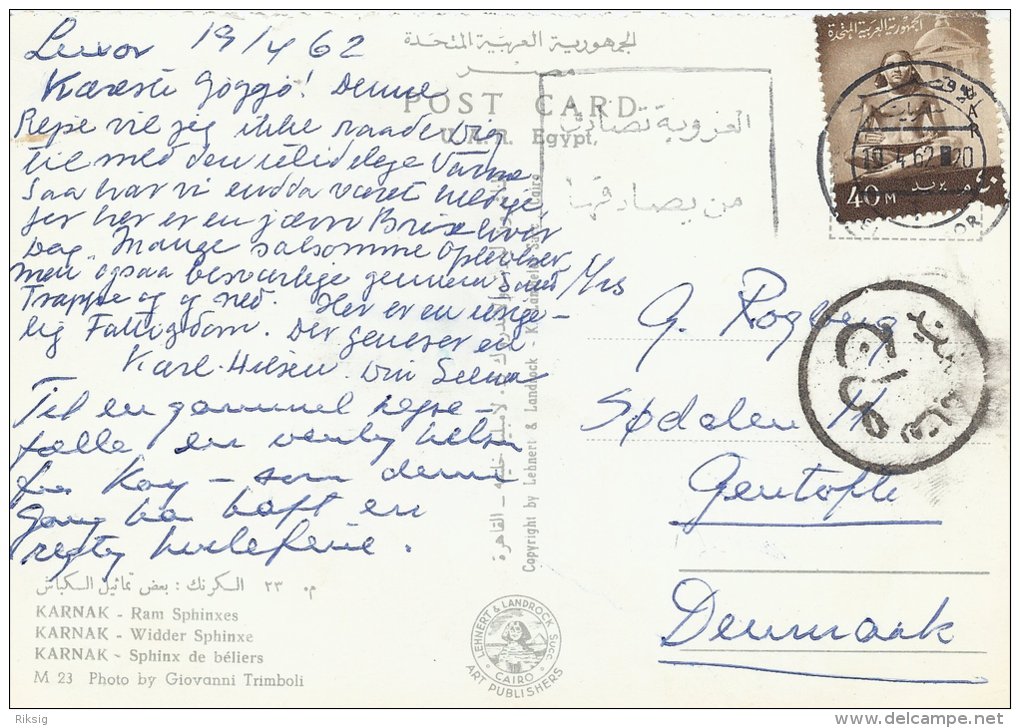 Luxor 19/4 62
Kæreste Göggö! Denne
Rejse vil jeg ikke raade dig
til med den ulidelige Varme
Saa har vi endda været heldige
for her er en jævn Brise hver
Dag. Mange Oplevelser
men ogsaa besværlige gennem Sand
Trapper og og ned. Her er en
lig Fattigdom. Det generer en
Karl-Nilsen. Din
Til en gammel rejse-
fælle en venlig hilsen
fra Kay – som denne
Gang har haft en
rigtig hvileferie.
الجمهورية العربية المتحدة
مصر
POST CARD
U.A.R. Egypt.
العزوبة تصادق
من يصادقها
الجمهورية العربية المتحدة
40 M
بريد
19.4.62 20
LUXOR
Mrs
G. Rogberg
Sødalen 14
Gentofte
Denmark
Copyright by Lehnert & Landrock - Cairo
م. ٢٣ الكرنك : بعض تماثيل الكباش
KARNAK - Ram Sphinxes
KARNAK - Widder Sphinxe
KARNAK - Sphinx de béliers
M 23 Photo by Giovanni Trimboli
LEHNERT & LANDROCK SUCC.
CAIRO
ART PUBLISHERS
Riksig
www.delcampe.net